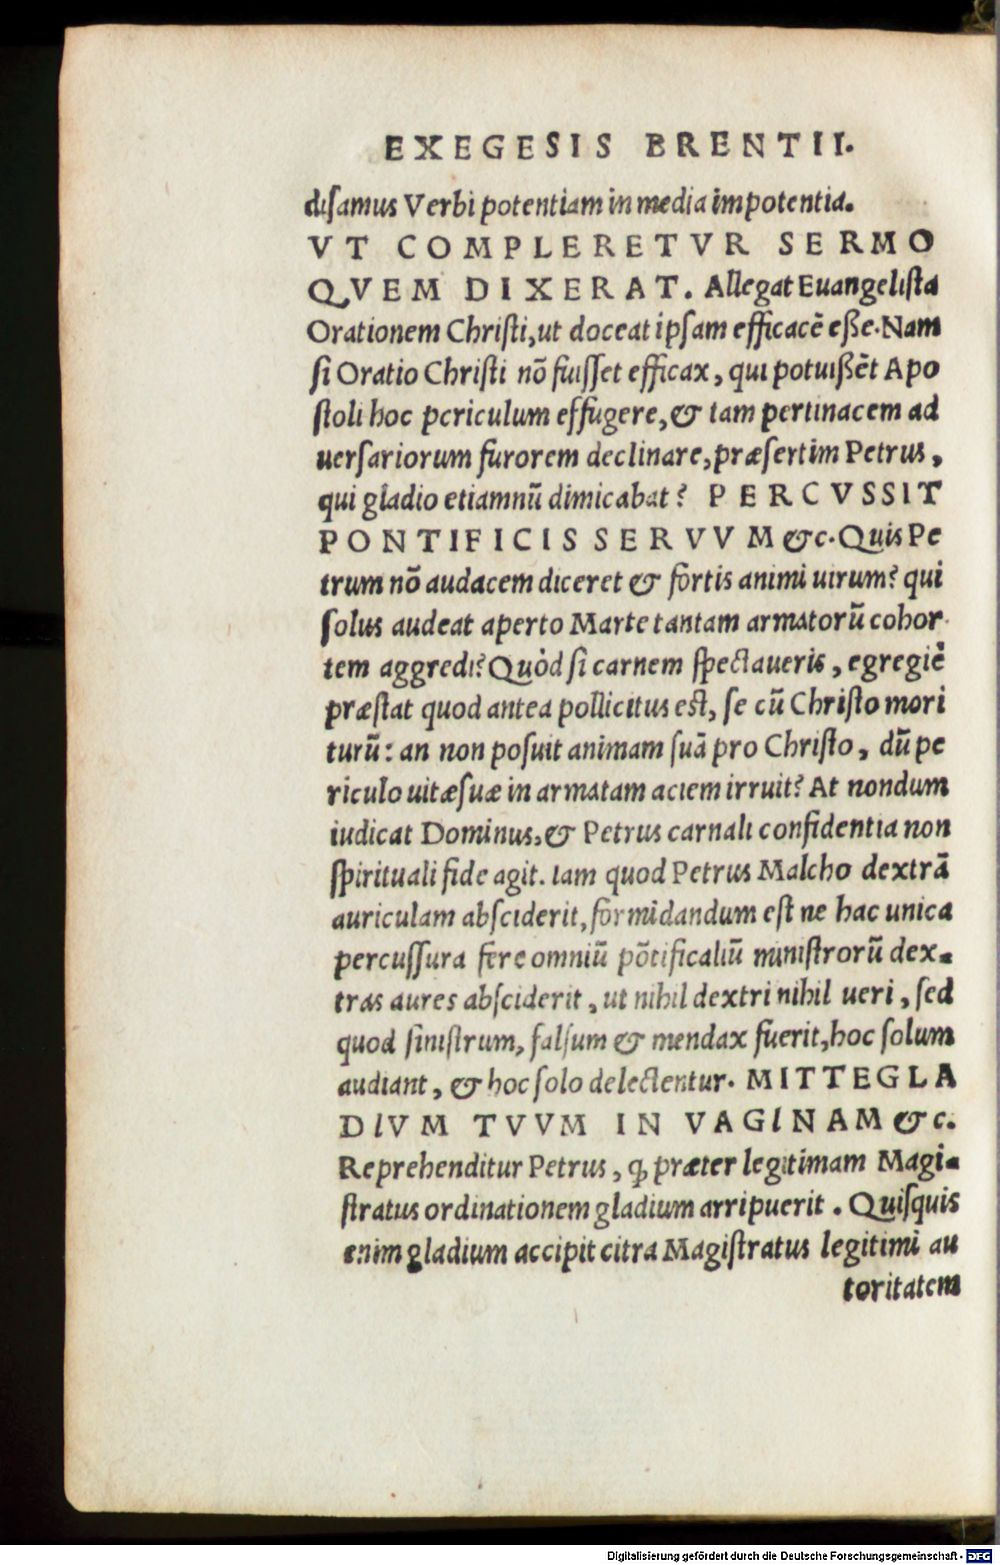 EXEGESIS BRENTII.
diſamus Verbi potentiam in media impotentia.
VT COMPLERETVR SERMO
QVEM DIXERAT. Allegat Euangeliſta
Orationem Chriſti, ut doceat ipſam efficacē eſſe. Nam
ſi Oratio Chriſti nō fuiſſet efficax, qui potuiſſēt Apo
ſtoli hoc periculum effugere, & tam pertinacem ad
uerſariorum furorem declinare, præſertim Petrus,
qui gladio etiamnū dimicabat? PERCVSSIT
PONTIFICIS SERVVM &c. Quis Pe
trum nō audacem diceret & fortis animi uirum? qui
ſolus audeat aperto Marte tantam armatorū cohor
tem aggredi? Quòd ſi carnem ſpectaueris, egregiè
præſtat quod antea pollicitus eſt, ſe cū Chriſto mori
turū: an non poſuit animam ſuā pro Chriſto, dū pe
riculo uitæ ſuæ in armatam aciem irruit? At nondum
iudicat Dominus, & Petrus carnali confidentia non
ſpirituali fide agit. Iam quod Petrus Malcho dextrā
auriculam abſciderit, formidandum eſt ne hac unica
percuſſura fere omniū pōtificaliū miniſtrorū dex-
tras aures abſciderit, ut nihil dextri nihil ueri, ſed
quod ſiniſtrum, falſum & mendax fuerit, hoc ſolum
audiant, & hoc ſolo delectentur. MITTE GLA
DIVM TVVM IN VAGINAM &c.
Reprehenditur Petrus, ꝙ præter legitimam Magi-
ſtratus ordinationem gladium arripuerit. Quiſquis
enim gladium accipit citra Magiſtratus legitimi au
toritatem
Digitalisierung gefördert durch die Deutsche Forschungsgemeinschaft - DFG